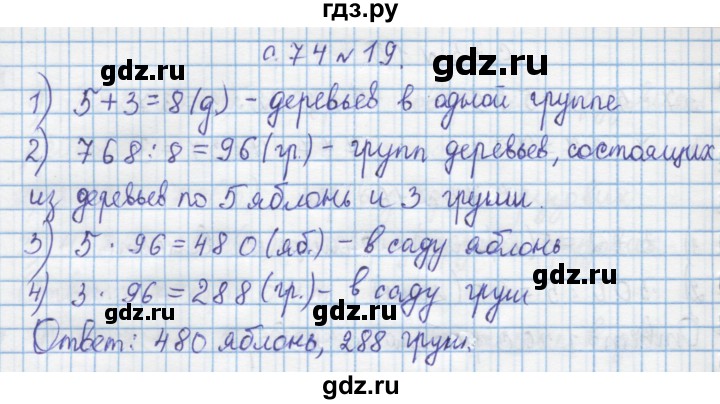 гдз.ру
с. 74 № 19.
gdz.ru gdz.ru
1) 5+3=8(д) - деревьев в одной группе
2) 768:8=96(гр.) - групп деревьев, состоящих
gdz.ru
из деревьев по 5 яблонь и 3 груши.
3) 5 · 96=480(яб.) - в саду яблонь
gdz.ru gdz.ru
4) 3 · 96=288(гр.) - в саду груш
Ответ: 480 яблонь, 288 груш.
gdz.ru gdz.ru
gdz.ru